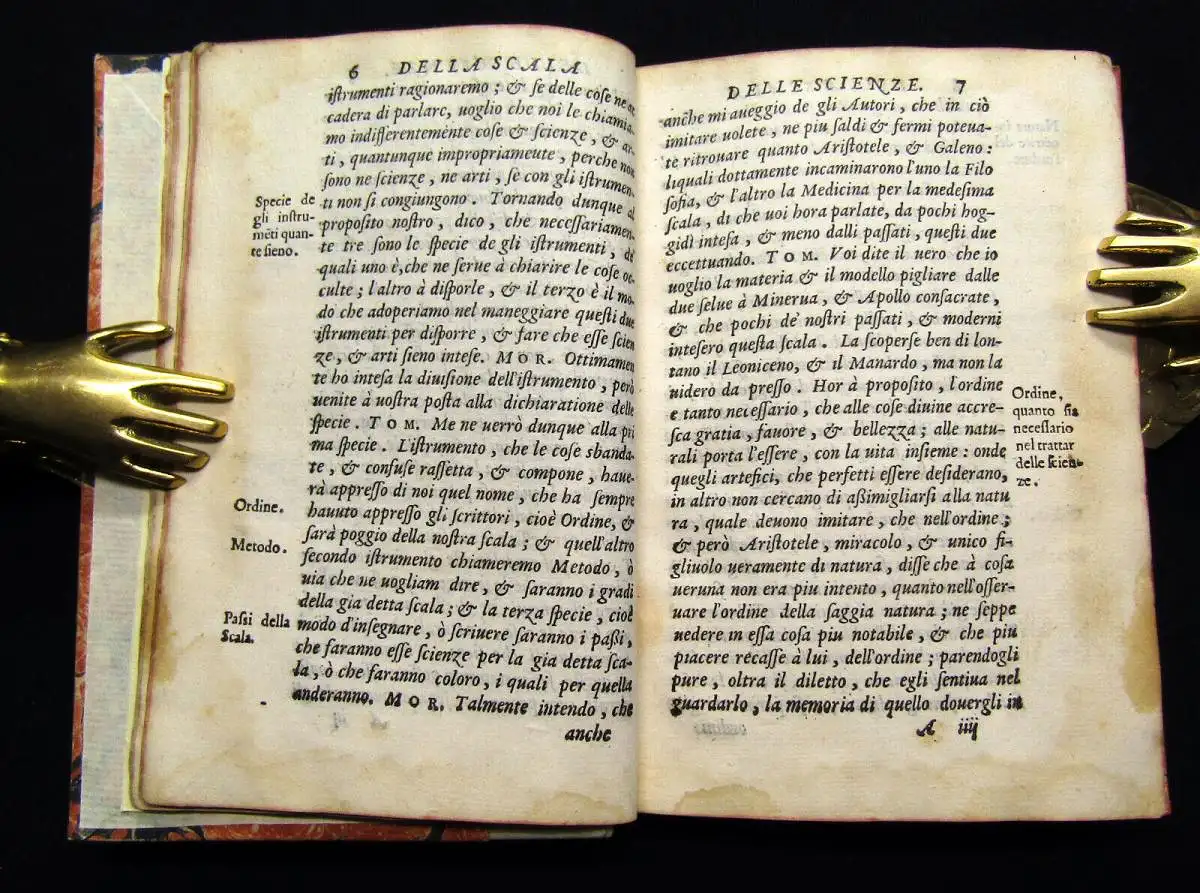 6 DELLA SCALA
istrumenti ragionaremo; & se delle cose ne ac
cadera di parlarc, uoglio che noi le chiamia-
mo indifferentemẽnte cose & scienze, & ar-
ti, quantunque impropriameute, perche non
sono ne scienze, ne arti, se con gli istrumen-
ti non si congiungono. Tornando dunque al
proposito nostro, dico, che necessariamen-
te tre sono le specie de gli istrumenti, de'
quali uno è, che ne serue à chiarire le cose oc
culte; l'altro à disporle, & il terzo è il mo-
do che adoperiamo nel maneggiare questi due
istrumenti per disporre, & fare che esse scien
ze, & arti sieno intese. MOR. Ottimamen
te ho intesa la diuisione dell'istrumento, però
uenite à uostra posta alla dichiaratione delle
specie. TOM. Me ne uerrò dunque alla pri
ma specie. L'istrumento, che le cose sbanda-
te, & confuse rassetta, & compone, haue-
rà appresso di noi quel nome, che ha sempre
hauuto appresso gli scrittori, cioè Ordine, &
sarà poggio della nostra scala; & quell'altro
secondo istrumento chiameremo Metodo, ò
uia che ne uogliam dire, & saranno i gradi
della gia detta scala; & la terza specie, cioè
modo d'insegnare, ò scriuere saranno i passi,
che faranno esse scienze per la gia detta sca-
la, ò che faranno coloro, i quali per quella
anderanno. MOR. Talmente intendo, che
anche
Specie de
gli instru-
mẽti quan-
te sieno.
Ordine.
Metodo.
Passi della
Scala.
DELLE SCIENZE. 7
anche mi aueggio de gli Autori, che in ciò
imitare uolete, ne piu saldi & fermi poteua-
te ritrouare quanto Aristotele, & Galeno:
liquali dottamente incaminarono l'uno la Filo
sofia, & l'altro la Medicina per la medesima
scala, di che uoi hora parlate, da pochi hog-
gidì intesa, & meno dalli passati, questi due
eccettuando. TOM. Voi dite il uero che io
uoglio la materia & il modello pigliare dalle
due selue à Minerua, & Apollo consacrate,
& che pochi de' nostri passati, & moderni
intesero questa scala. La scoperse ben di lon-
tano il Leoniceno, & il Manardo, ma non la
uiderò da presso. Hor à proposito, l'ordine
e tanto necessario, che alle cose diuine accre-
sca gratia, fauore, & bellezza; alle natu-
rali porta l'essere, con la uita insieme: onde
quegli artefici, che perfetti essere desiderano,
in altro non cercano di assimigliarsi alla natu
ra, quale deuono imitare, che nell'ordine;
& però Aristotele, miracolo, & unico fi-
gliuolo ueramente di natura, disse che à cosa
ueruna non era piu intento, quanto nell'osser-
uare l'ordine della saggia natura; ne seppe
uedere in essa cosa piu notabile, & che piu
piacere recasse à lui, dell'ordine; parendogli
pure, oltra il diletto, che egli sentiua nel
guardarlo, la memoria di quello douergli in
A iiij
Ordine,
quanto sia
necessario
nel trattar
delle scien-
ze.